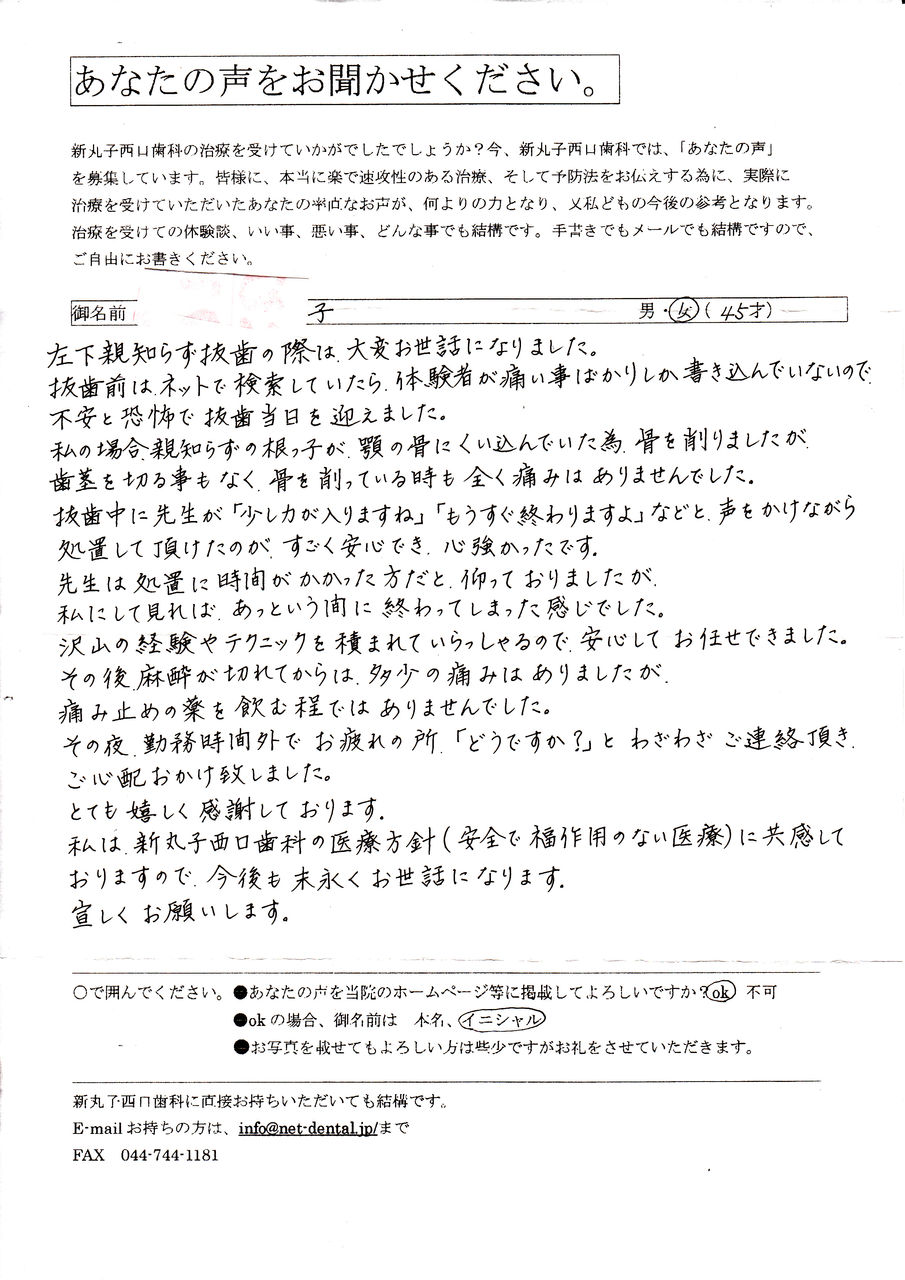 あなたの声をお聞かせください。
新丸子西口歯科の治療を受けていかがでしたでしょうか？今、新丸子西口歯科では、「あなたの声」
を募集しています。皆様に、本当に楽で速攻性のある治療、そして予防法をお伝えする為に、実際に
治療を受けていただいたあなたの率直なお声が、何よりの力となり、又私どもの今後の参考となります。
治療を受けての体験談、いい事、悪い事、どんな事でも結構です。手書きでもメールでも結構ですので、
ご自由にお書きください。
御名前 子 男・女（45才）
左下親知らず抜歯の際は、大変お世話になりました。
抜歯前は、ネットで検索していたら、体験者が痛い事ばかりしか書き込んでいないので、
不安と恐怖で抜歯当日を迎えました。
私の場合、親知らずの根っ子が、顎の骨にくい込んでいた為、骨を削りましたが、
歯茎を切る事もなく、骨を削っている時も全く痛みはありませんでした。
抜歯中に先生が「少し力が入りますね」「もうすぐ終わりますよ」などと、声をかけながら
処置して頂けたのが、すごく安心でき、心強かったです。
先生は処置に時間がかかった方だと、仰っておりましたが、
私にして見れば、あっという間に終わってしまった感じでした。
沢山の経験やテクニックを積まれていらっしゃるので、安心してお任せできました。
その後、麻酔が切れてからは、多少の痛みはありましたが、
痛み止めの薬を飲む程ではありませんでした。
その夜、勤務時間外でお疲れの所、「どうですか？」とわざわざご連絡頂き、
ご心配おかけ致しました。
とても嬉しく感謝しております。
私は、新丸子西口歯科の医療方針（安全で福作用のない医療）に共感して
おりますので、今後も末永くお世話になります。
宜しくお願いします。
○で囲んでください。●あなたの声を当院のホームページ等に掲載してよろしいですか？ok 不可
●okの場合、御名前は 本名、イニシャル
●お写真を載せてもよろしい方は些少ですがお礼をさせていただきます。
新丸子西口歯科に直接お持ちいただいても結構です。
E-mailお持ちの方は、info@net-dental.jp/まで
FAX 044-744-1181